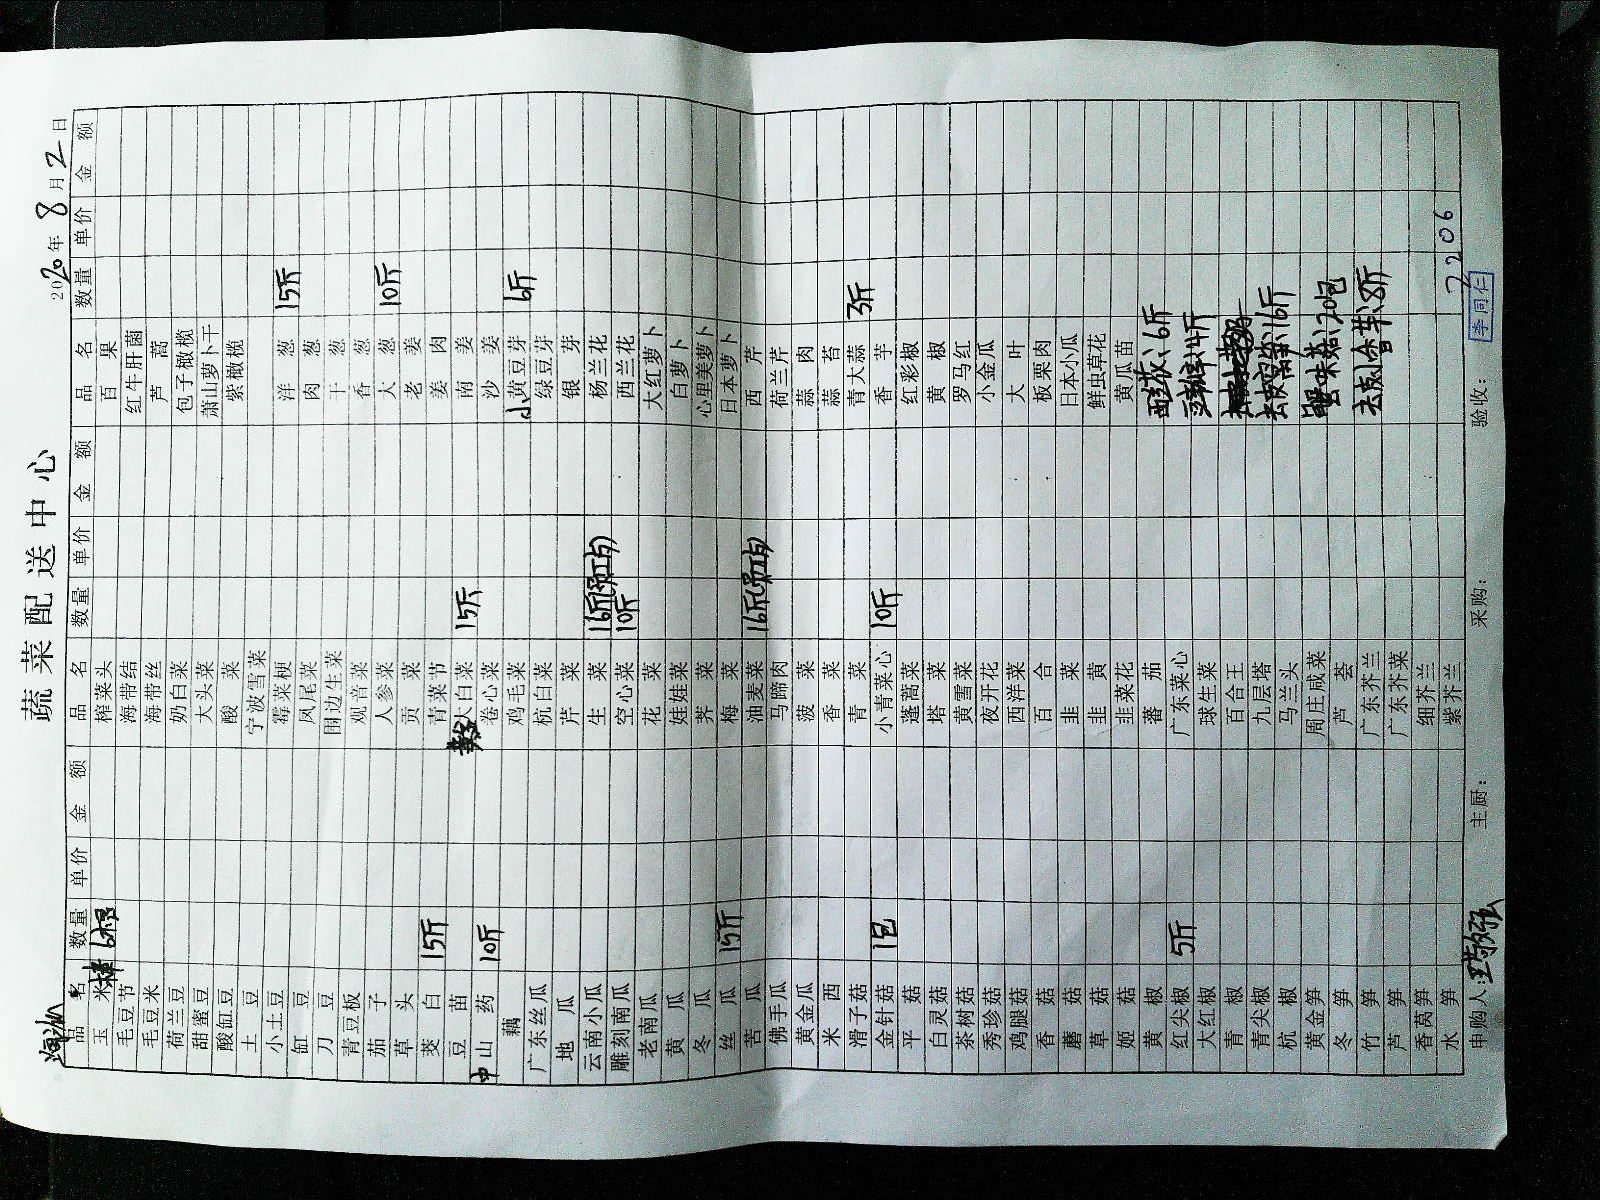 蔬菜配送中心
2020年8月2日
品名 数量 单价 金额 品名 数量 单价 金额 品名 数量 单价 金额
玉米棒 6根 榨菜头 百果
毛豆节 海带结 红牛肝菌
毛豆米 海带丝 芦蒿
荷兰豆 奶白菜 包子橄榄
甜蜜豆 大头菜 萧山萝卜干
酸缸豆 酸菜 紫橄榄
土豆 宁波雪菜
小土豆 霉菜梗 洋葱 15斤
缸豆 凤尾菜 肉葱
刀豆 围边生菜 干葱
青豆板 观音菜 香葱
茄子 人参菜 大葱 10斤
草头 贡菜 老姜
茭白 15斤 青菜节 姜肉
豆苗 大白菜 15斤 南姜
中山药 10斤 卷心菜 沙姜
藕 鸡毛菜 小黄豆芽 6斤
广东丝瓜 杭白菜 绿豆芽
地瓜 芹菜 银芽
云南小瓜 生菜 16斤 杨兰花
雕刻南瓜 空心菜 10斤 西兰花
老南瓜 花菜 大红萝卜
黄瓜 娃娃菜 白萝卜
冬瓜 荠菜 心里美萝卜
丝瓜 15斤 梅菜 日本萝卜
苦瓜 油麦菜 16斤 西芹
佛手瓜 马蹄肉 荷兰芹
黄金瓜 菠菜 蒜肉
米西 香菜 蒜苔
滑子菇 青菜 青大蒜 3斤
金针菇 1包 小青菜心 10斤 香芋
平菇 蓬蒿菜 红彩椒
白灵菇 塔菜 黄椒
茶树菇 黄雪菜 罗马红
秀珍菇 夜开花 小金瓜
鸡腿菇 西洋菜 大叶
香菇 百合 板栗肉
蘑菇 韭菜 日本小瓜
草菇 韭黄 鲜虫草花
姬菇 韭菜花 黄瓜苗
黄椒 蕃茄 6斤
红尖椒 5斤 广东菜心
大红椒 球生菜 4斤
青椒 百合王
青尖椒 九层塔 去皮莴笋 16斤
杭椒 马兰头
黄金笋 周庄咸菜 蟹味菇 20包
冬笋 芦荟
竹笋 广东芥兰 去皮小香芋 18斤
芦笋 广东芥菜
香莴笋 细芥兰
水笋 紫芥兰 2206
申购人: 主厨: 采购: 验收: 李同仁